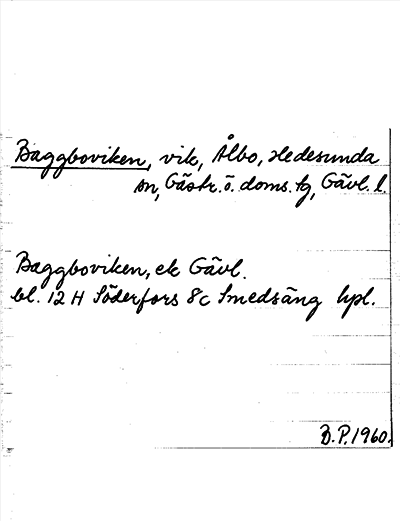 Baggboviken, vik, Ålbo, Hedesunda
sn, Gästr. ö. doms. tg, Gävl. l.
Baggboviken, ek Gävl.
bl. 12 H Söderfors 8c Smedsäng hpl.
B.P. 1960.